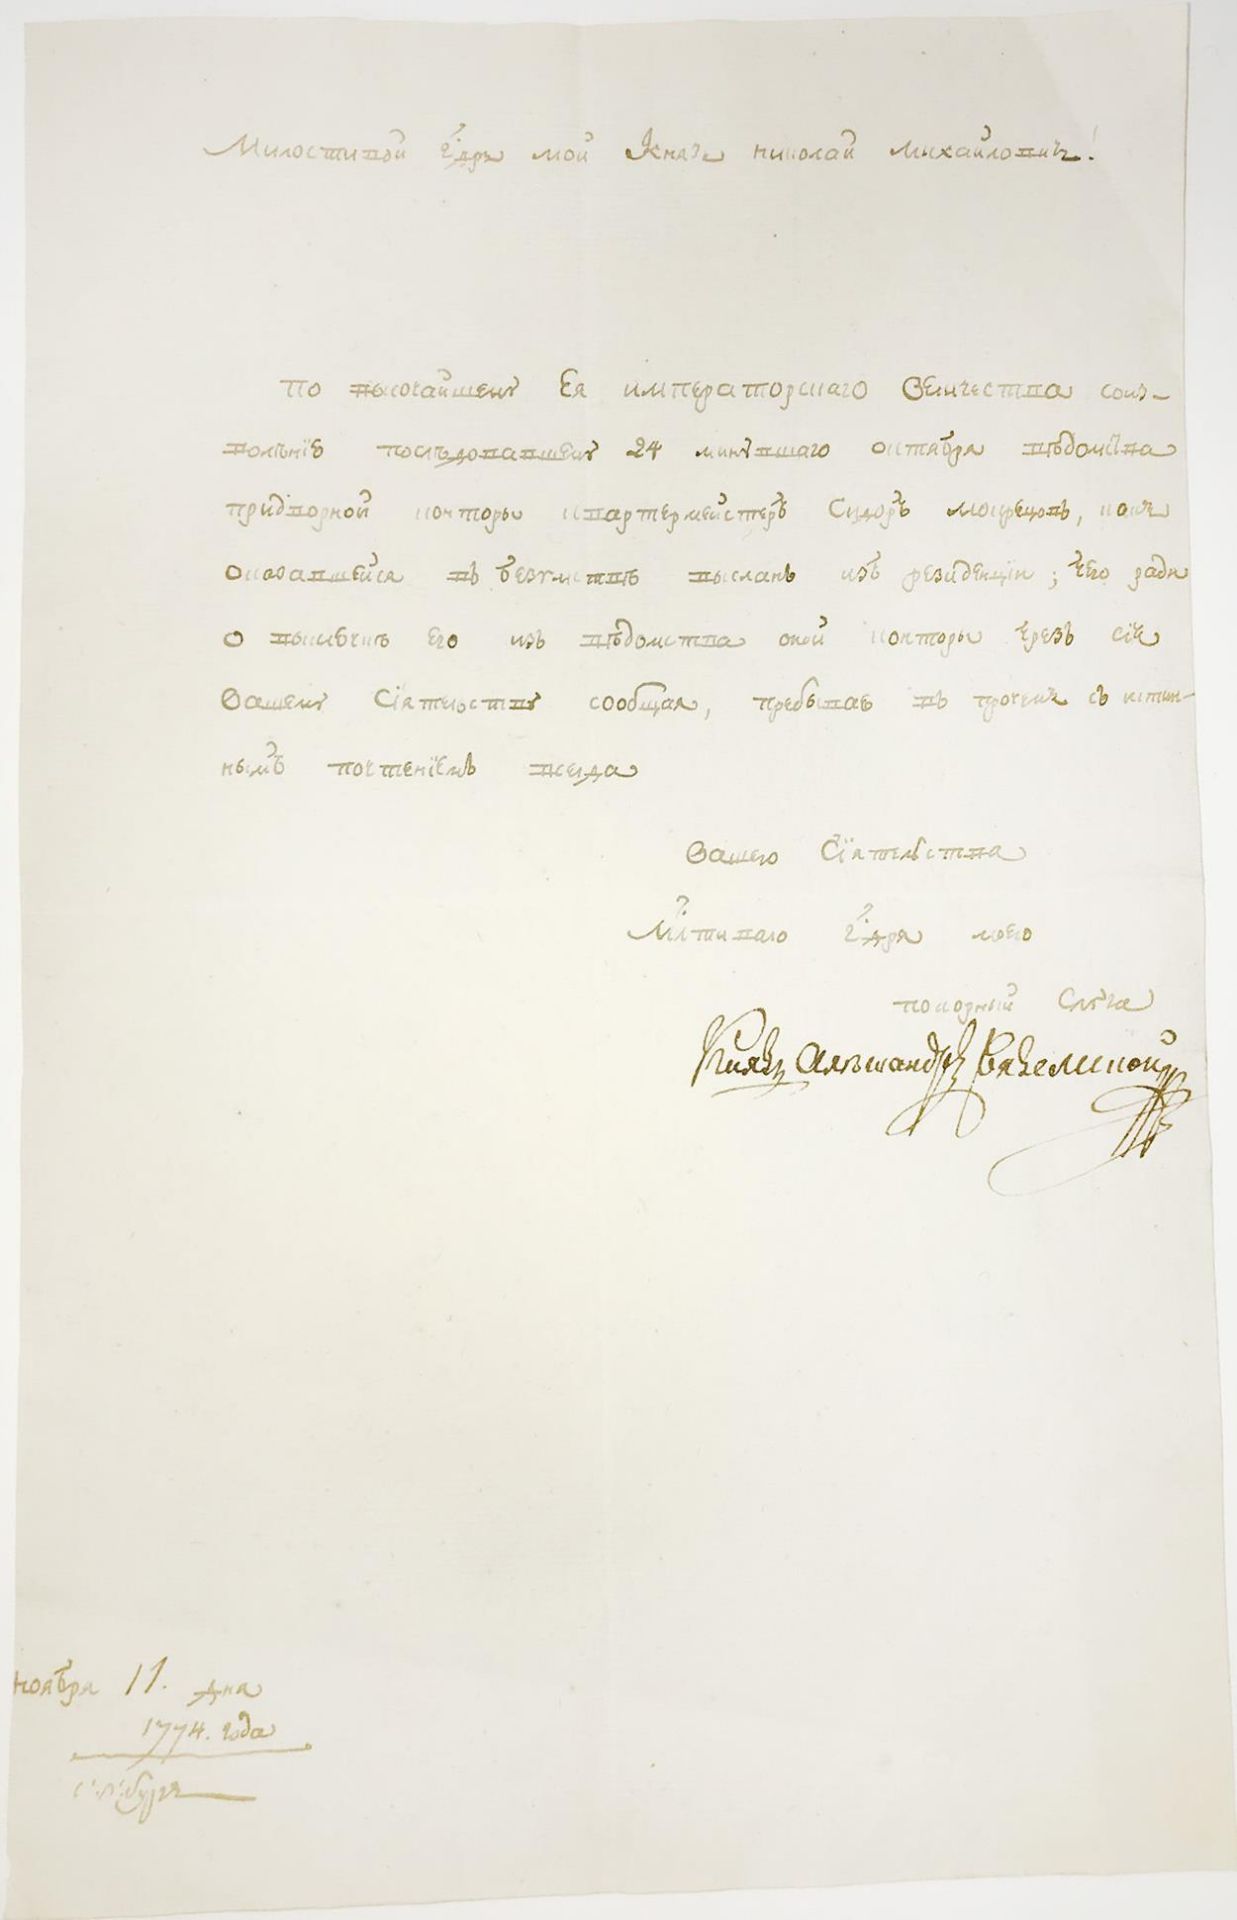 Милостивой Гдрь мой Князь Николай Михайловичъ!
По высочайшему Ея императорскаго Величества соиз-
волѣнїю послѣдовавшему 24 минувшаго октября вѣдомства
придворной конторы квартермейстеръ Сидоръ
оказавшейся въ безумствѣ высланъ изъ резиденціи; чего ради
о выключкѣ его изъ вѣдомства оной конторы чрезъ сїе
Вашему Сїятельству сообщая, пребываю въ протчемъ съ истин-
нымъ почтенїемъ всегда
Вашего Сїятельства
Млтиваго Гдря моего
покорный Слуга
Князь Александръ Вяземской
Ноября 11. дня
1774. года
С:П:бургъ